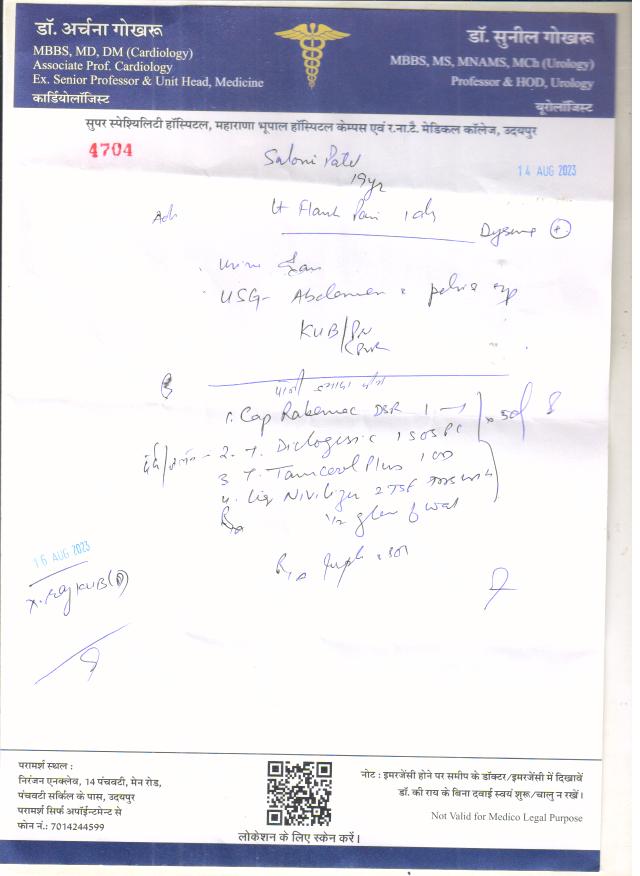 डॉ. अर्चना गोखरू
MBBS, MD, DM (Cardiology)
Associate Prof. Cardiology
Ex. Senior Professor & Unit Head, Medicine
कार्डियोलॉजिस्ट
डॉ. सुनील गोखरू
MBBS, MS, MNAMS, MCh (Urology)
Professor & HOD, Urology
यूरोलॉजिस्ट
सुपर स्पेश्यिलिटी हॉस्पिटल, महाराणा भूपाल हॉस्पिटल केम्पस एवं र.ना.टै. मेडिकल कॉलेज, उदयपुर
4704
14 AUG 2023
Saloni Patel
19yr
Lt Flank Pain
Dysuria +
USG- Abdomen & pelvis
KUB/
1. Cap Rabemac DSR 1
2. T. Diclogesic 1 SOS
3 T. Tamcevol Plus 1 OD
4. Liq Nivilizer 2 TSF
1/2 glass of wat
16 AUG 2023
X-Ray KUB
परामर्श स्थल :
निरंजन एनक्लेव, 14 पंचवटी, मेन रोड,
पंचवटी सर्किल के पास, उदयपुर
परामर्श सिर्फ अपॉईन्टमेन्ट से
फोन नं.: 7014244599
लोकेशन के लिए स्केन करें।
नोट : इमरजेंसी होने पर समीप के डॉक्टर/इमरजेंसी में दिखावें
डॉ. की राय के बिना दवाई स्वयं शुरू/चालु न रखें।
Not Valid for Medico Legal Purpose